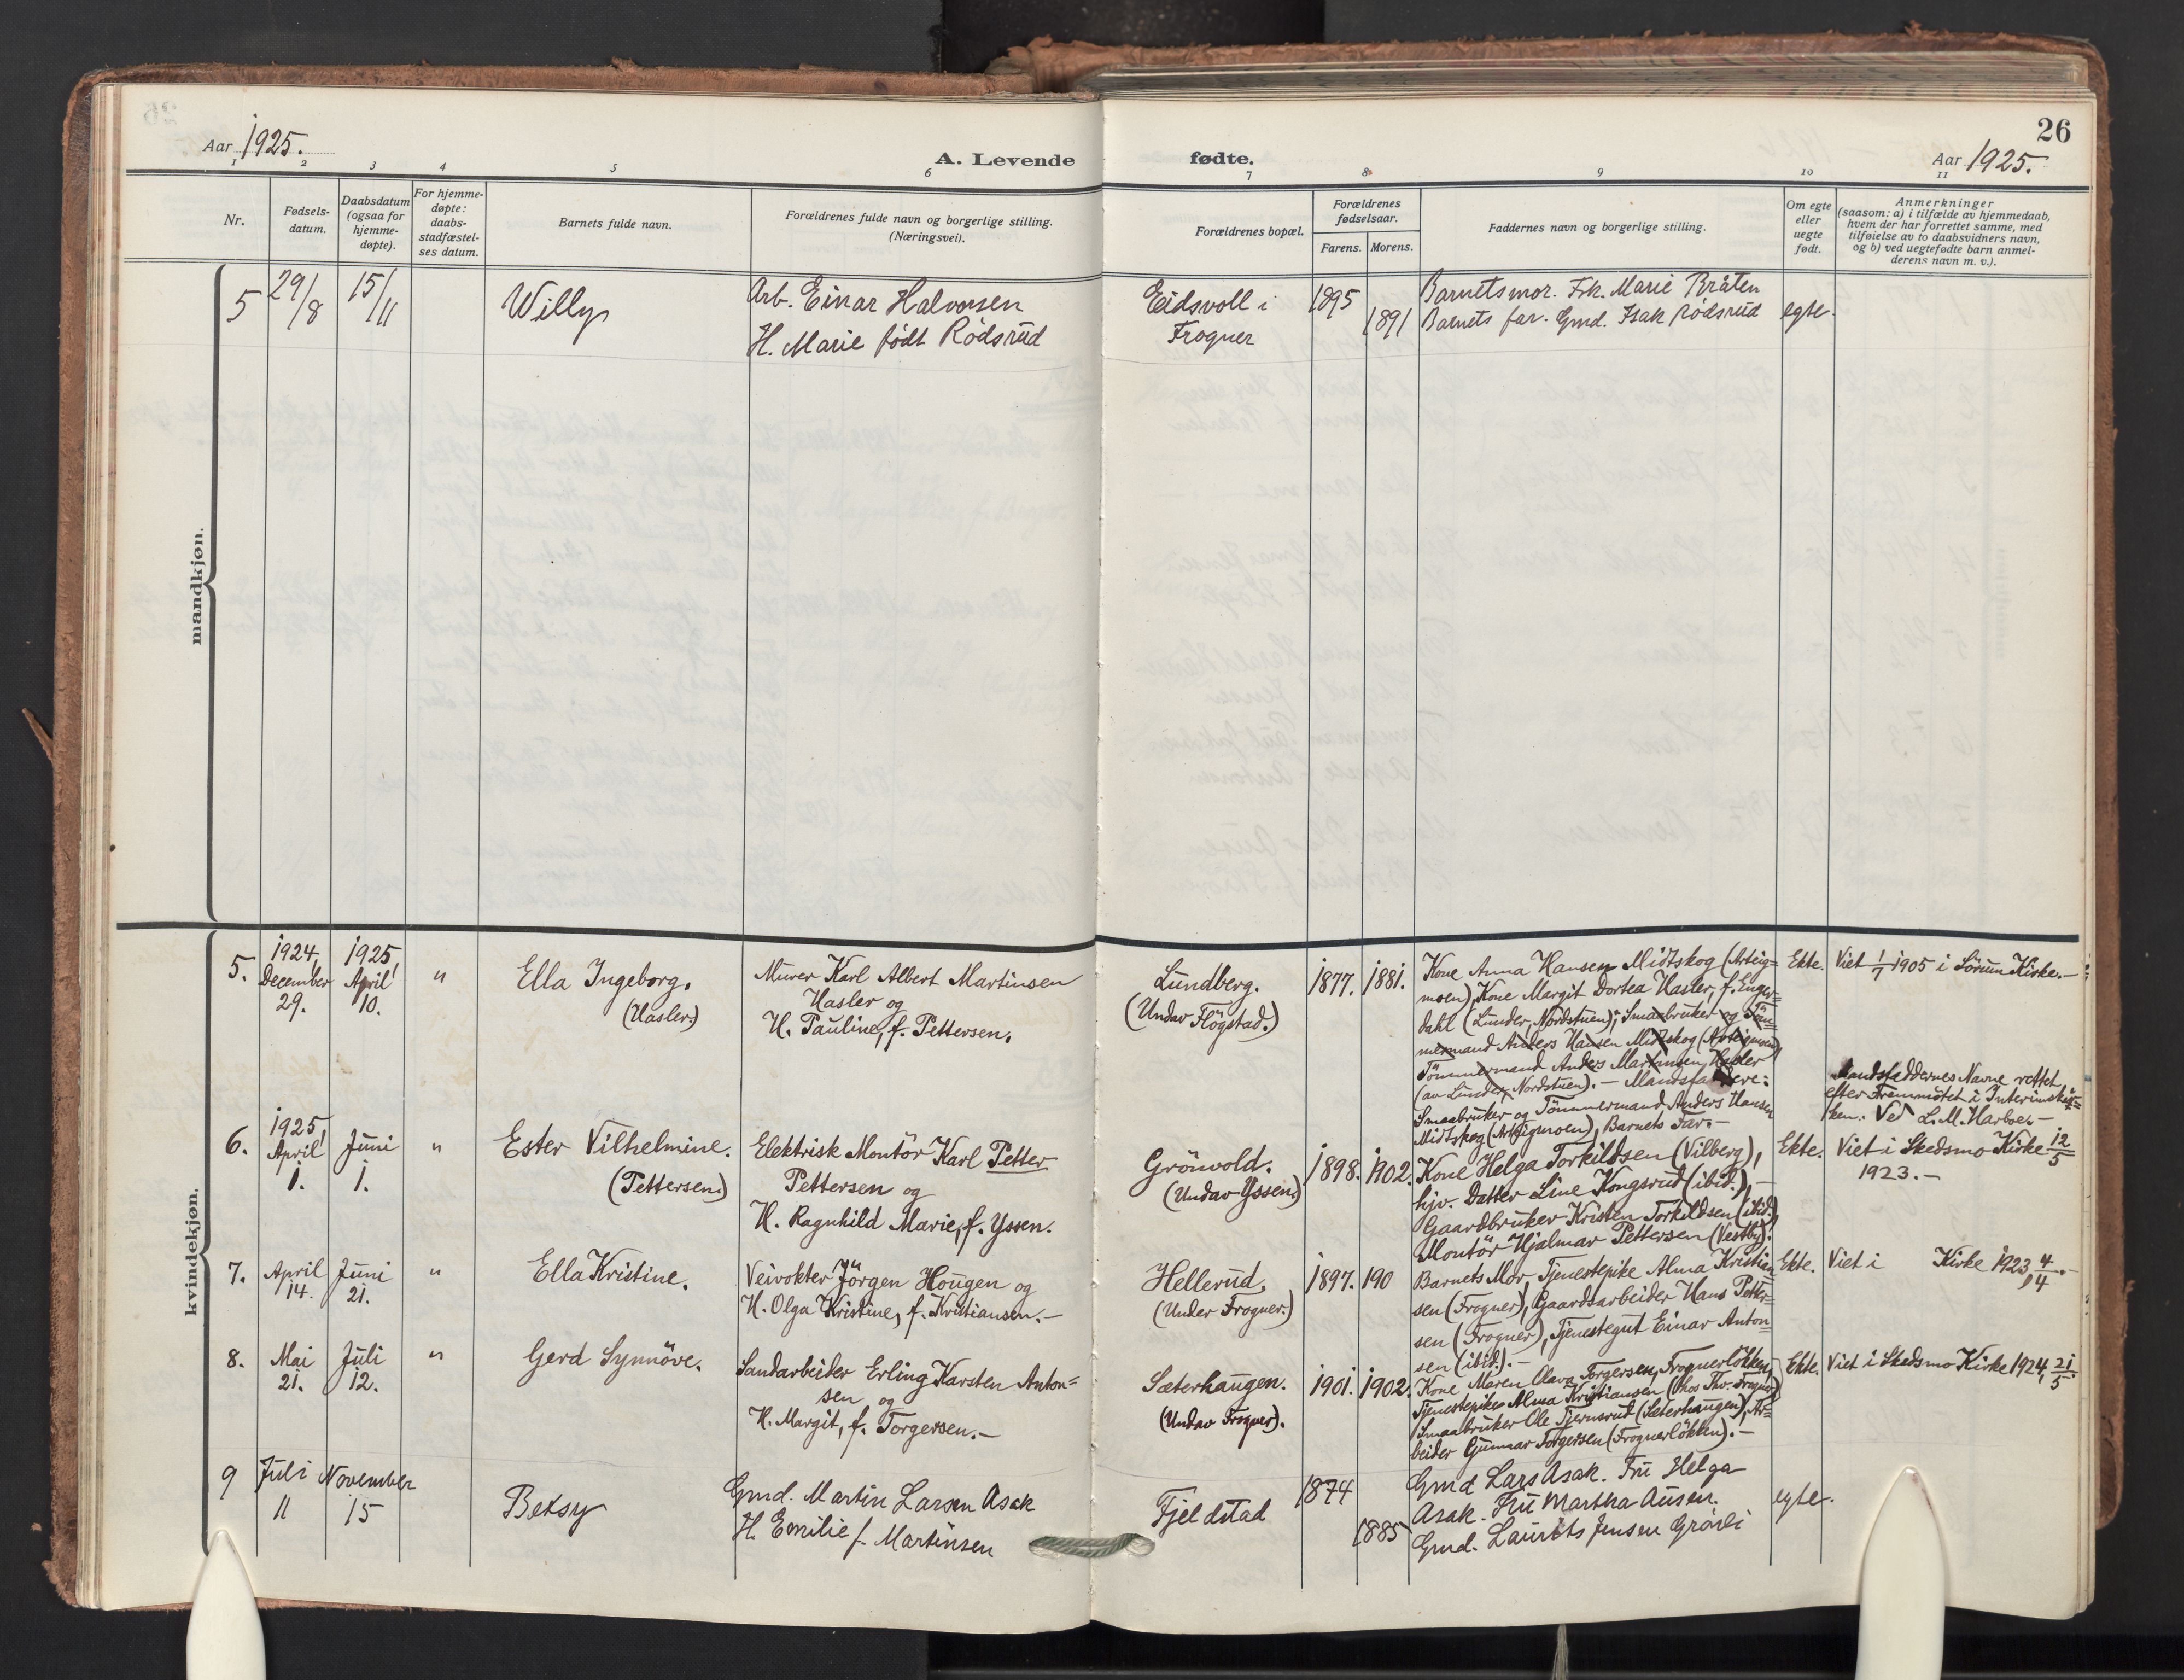 26
Aar 1925.
A. Levende fødte.
Aar 1925.
1 2 3 4 5 6 7 8 9 10 11
Nr.
Fødsels-
datum.
Daabsdatum
(ogsaa for
hjemme-
døpte).
For hjemme-
døpte:
daabs-
stadfæstel-
ses datum.
Barnets fulde navn.
Forældrenes fulde navn og borgerlige stilling.
(Næringsvei).
Forældrenes bopæl.
Forældrenes
fødselsaar.
Farens. Morens.
Faddernes navn og borgerlige stilling.
Om egte
eller
uegte
født.
Anmerkninger
(saasom: a) i tilfælde av hjemmedaab,
hvem der har forrettet samme, med
tilføielse av to daabsvidners navn,
og b) ved uegtefødte barn anmel-
derens navn m. v.).
mandkjøn.
5
29/8
15/11
Willy
Arb. Einar Halvorsen
H. Marie født Rödsrud
Eidsvoll i
Frogner
1895
1891
Barnets mor. Frk. Marie Bråten
Barnets far. Gmd. Isak Rödsrud
egte.
kvindekjøn.
5.
1924,
December
29.
1925,
April
10.
"
Ella Ingeborg.
(Hasler.)
Murer Karl Albert Martinsen
Hasler og
H. Pauline, f. Pettersen.
Lundberg.
(Undav Flögstad.)
1877.
1881.
Kone Anna Hansen Midtskog (Arteig=
moen), Kone Margit Dortea Hasler, f. Enger=
dahl (Lunder, Nordstuen); Smaabruker og Töm=
mermand Anders Hansen Midtskog (Arteigmoen),
Tömmermand Anders Martinsen Hasler
(av Lunder, Nordstuen). — Mandsfaddere:
Smaabruker og Tömmermand Anders Hansen
Midtskog (Arteigmoen), Barnets Far. —
Ekte.
Viet 1/7 1905 i Sörum Kirke. —
Mandsfaddernes Navne rettet
efter Fremmötet i Interimskir=
ken. Ved L. M. Harboe. —
6.
1925,
April
1.
Juni
1.
"
Ester Vilhelmine.
(Pettersen)
Elektrisk Montör Karl Petter
Pettersen og
H. Ragnhild Marie, f. Yssen.
Grönvold.
(Undav Yssen)
1898.
1902.
Kone Helga Torkildsen (Vilberg),
hjv. Datter Line Kongsrud (ibid.), —
Gaardbruker Kristen Torkildsen (ibid.),
Montör Hjalmar Pettersen (Vestby).
Ekte.
Viet i Skedsmo Kirke 12/5
1923. —
7.
April
14.
Juni
21.
"
Ella Kristine.
Veivokter Jörgen Hougen og
H. Olga Kristine, f. Kristiansen. —
Hellerud,
(Under Frogner.)
1897.
190
Barnets Mor, Tjenestepike Alma Kristian
sen (Frogner), Gaardsarbeider Hans Petter=
sen (Frogner), Tjenestegut Einar Anton=
sen (ibid.). —
Ekte.
Viet i Kirke 1923, 4/4. —
8.
Mai
21.
Juli
12.
"
Gerd Synnöve.
Sandarbeider Erling Karsten Anton=
sen og
H. Margit, f. Torgersen. —
Sæterhaugen.
(Undav Frogner).
1901.
1902.
Kone Maren Olava Torgersen, Frognerlökken,
Tjenestepike Alma Kristiansen (hos Thv. Frogner)
Smaabruker Ole Tjernsrud (Sæterhaugen), Ar=
beider Gunnar Torgersen (Frognerlökken). —
Ekte.
Viet i Skedsmo Kirke 1924, 21/5.
9
Juli
11
November
15
Betsy
Gmd. Martin Larsen Asak
H. Emilie f. Martinsen
Fjeldstad
1874
1885
Gmd Lars Asak. Fru Helga
Asak. Fru Martha Ausen.
Gmd. Laurits Jensen Gröndi
egte.